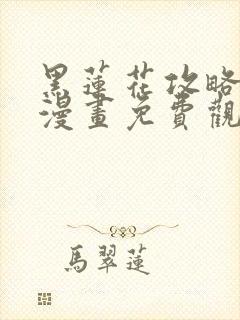 黑蓮花攻略
漫畫免費觀
馬翠蓮